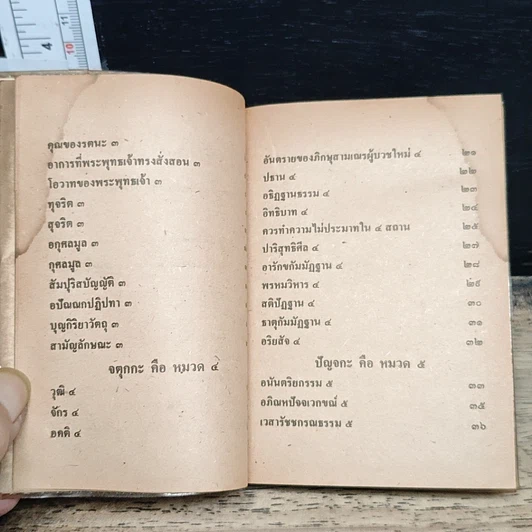 4
11
10
คุณของรตนะ ๓
อาการที่พระพุทธเจ้าทรงสั่งสอน ๓
โอวาทของพระพุทธเจ้า ๓
ทุจริต ๓
สุจริต ๓
อกุศลมูล ๓
กุศลมูล ๓
สัปปุริสบัญญัติ ๓
อปัณณกปฏิปทา ๓
บุญกิริยาวัตถุ ๓
สามัญลักษณะ ๓
จตุกกะ คือ หมวด ๔
วุฒิ ๔
จักร ๔
อคติ ๔
อันตรายของภิกษุสามเณรผู้บวชใหม่ ๔ ๒๑
ปธาน ๔ ๒๒
อธิฏฐานธรรม ๔ ๒๓
อิทธิบาท ๔ ๒๔
ควรทำความไม่ประมาทใน ๔ สถาน ๒๕
ปาริสุทธิศีล ๔ ๒๗
อารักขกัมมัฏฐาน ๔ ๒๘
พรหมวิหาร ๔ ๒๙
สติปัฏฐาน ๔ ๓๐
ธาตุกัมมัฏฐาน ๔ ๓๑
อริยสัจ ๔ ๓๒
ปัญจกะ คือ หมวด ๕
อนันตริยกรรม ๕ ๓๓
อภิณหปัจจเวกขณ์ ๕ ๓๕
เวสารัชชกรณธรรม ๕ ๓๖